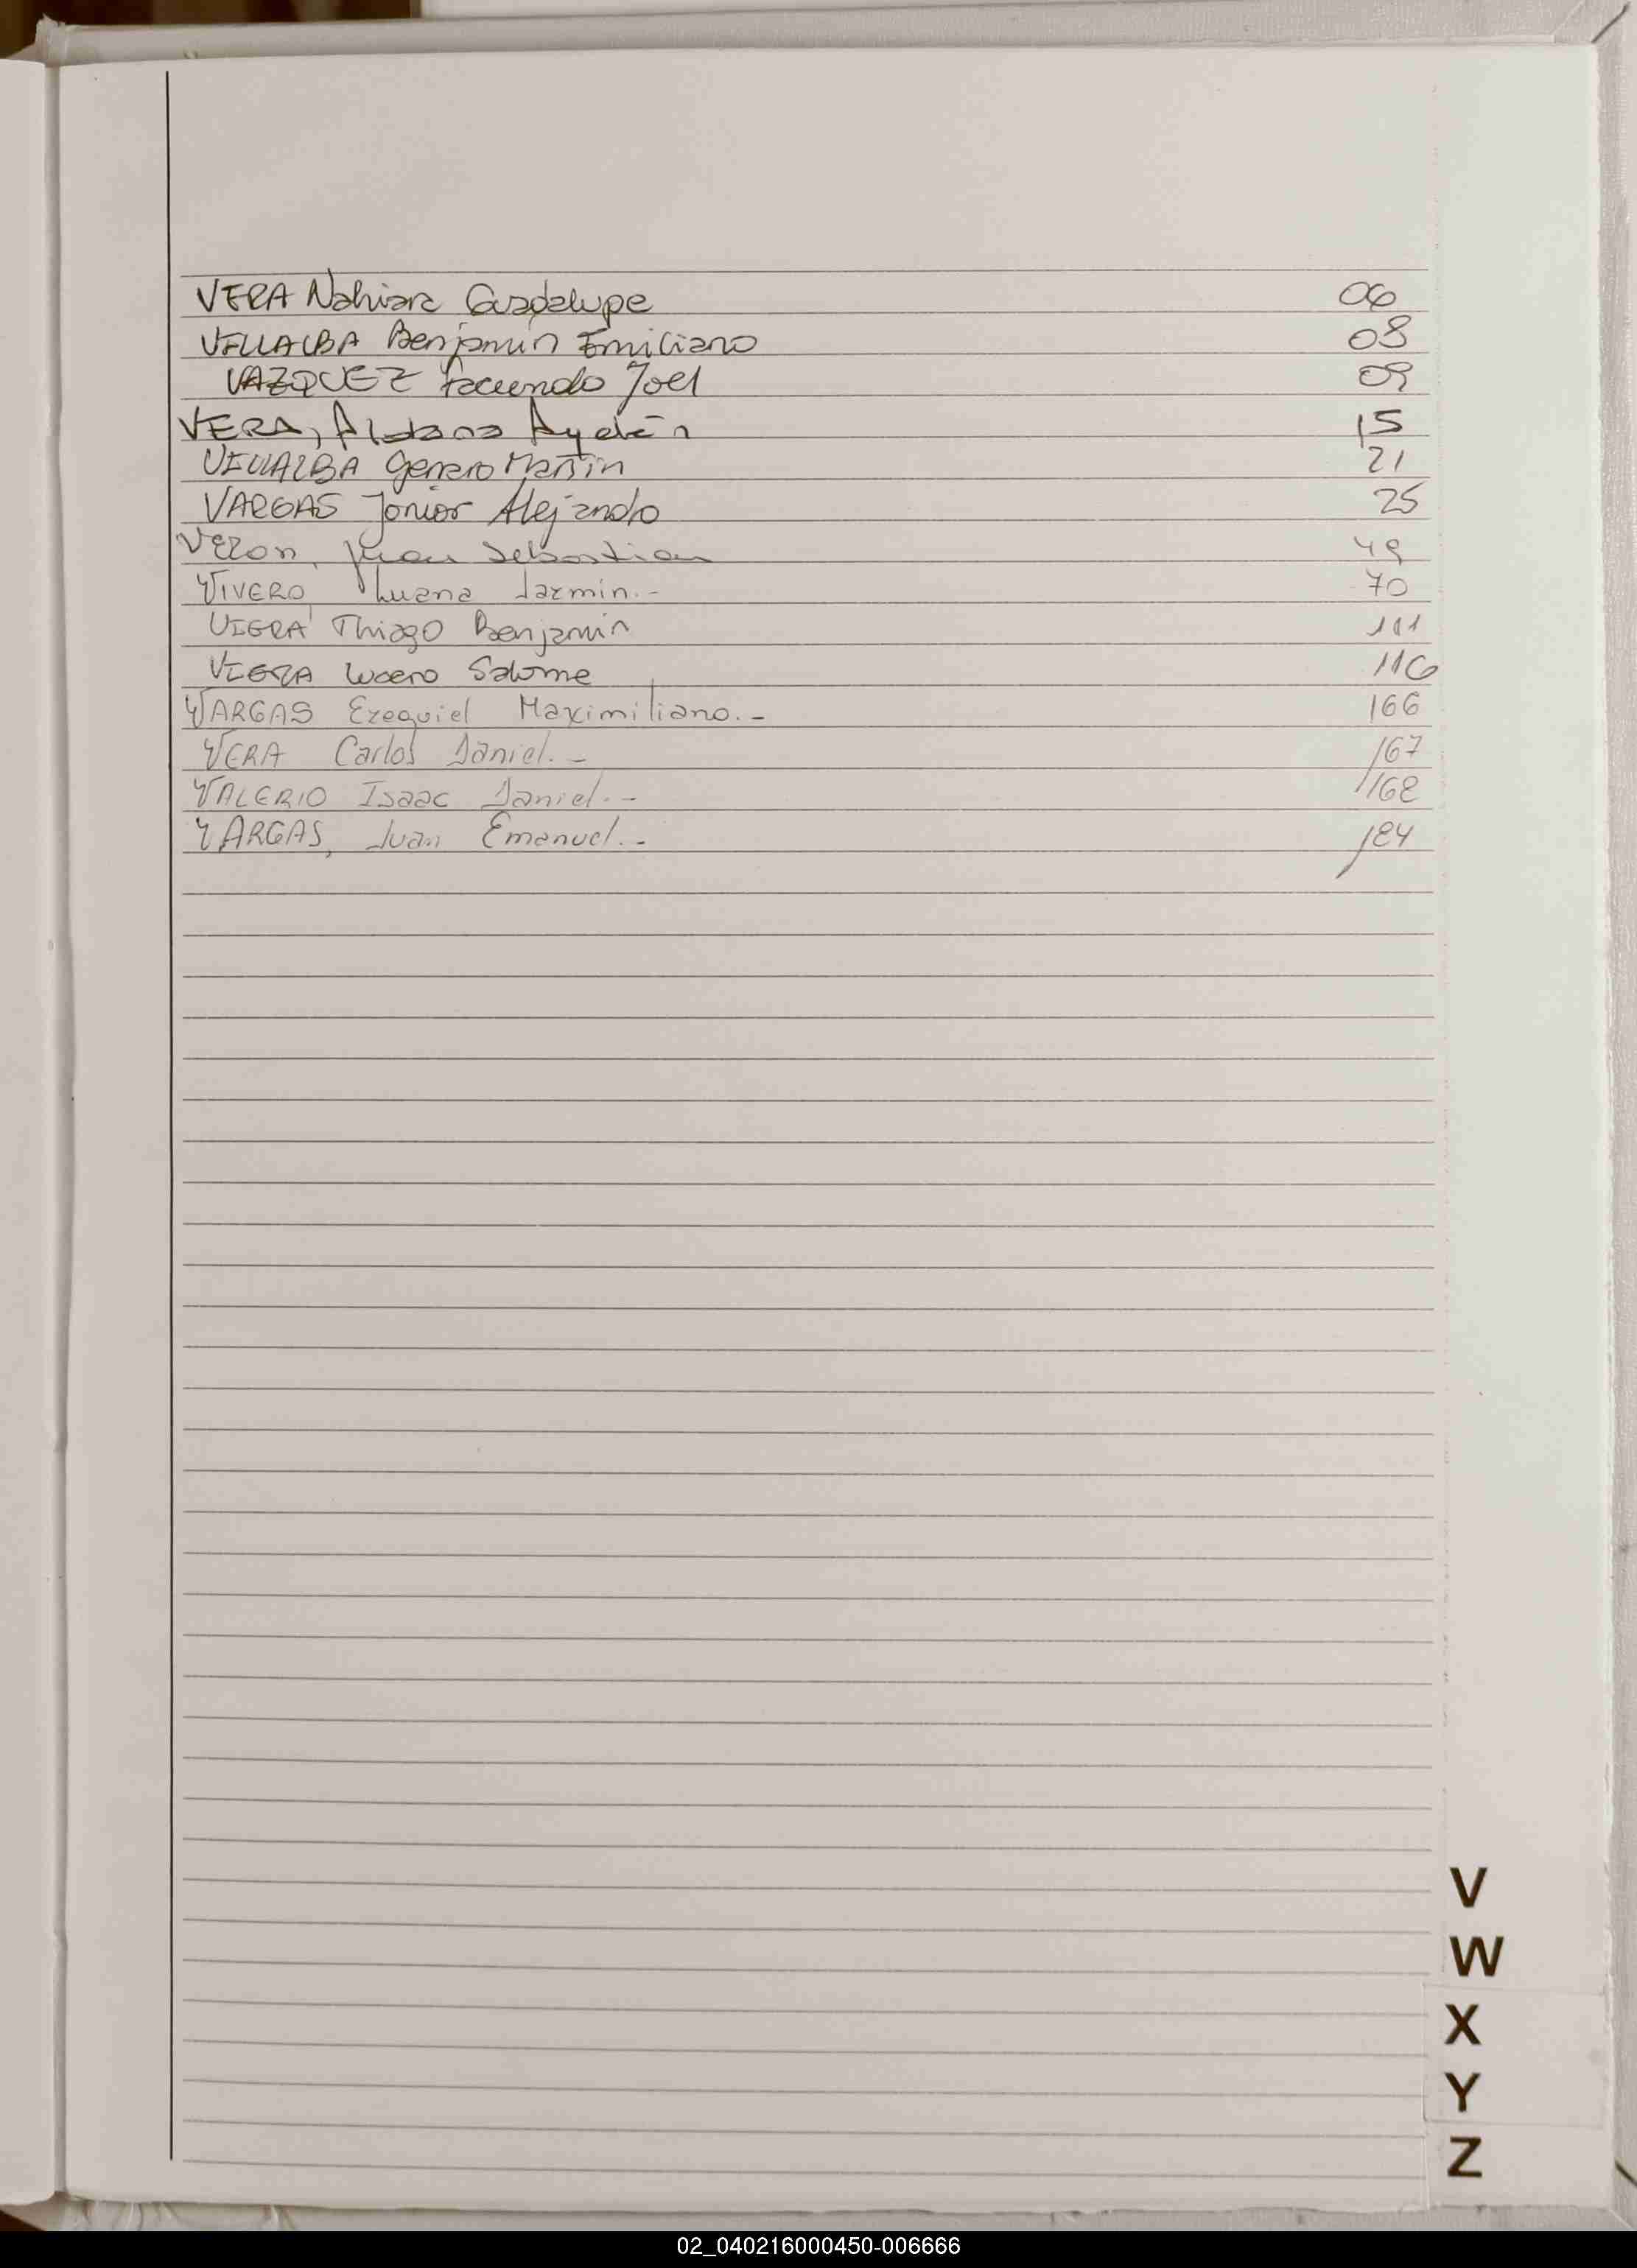 VERA Nahiara Guadalupe 06
VILLALBA Benjamin Emiliano 08
VAZQUEZ Facundo Joel 09
VERA, Aldana Ayelén 15
VILLALBA Genaro Martin 21
VARGAS Jonior Alejando 25
Veron, Juan Sebastian 49
VIVERO, Luana Jazmin.- 70
VIERA Thiago Benjamin 111
VIERA Lucero Salome 116
VARGAS Ezequiel Maximiliano.- 166
VERA Carlos Daniel.- 167
VALERIO Isaac Daniel.- 168
VARGAS, Juan Emanuel.- 184
V
W
X
Y
Z
02_040216000450-006666